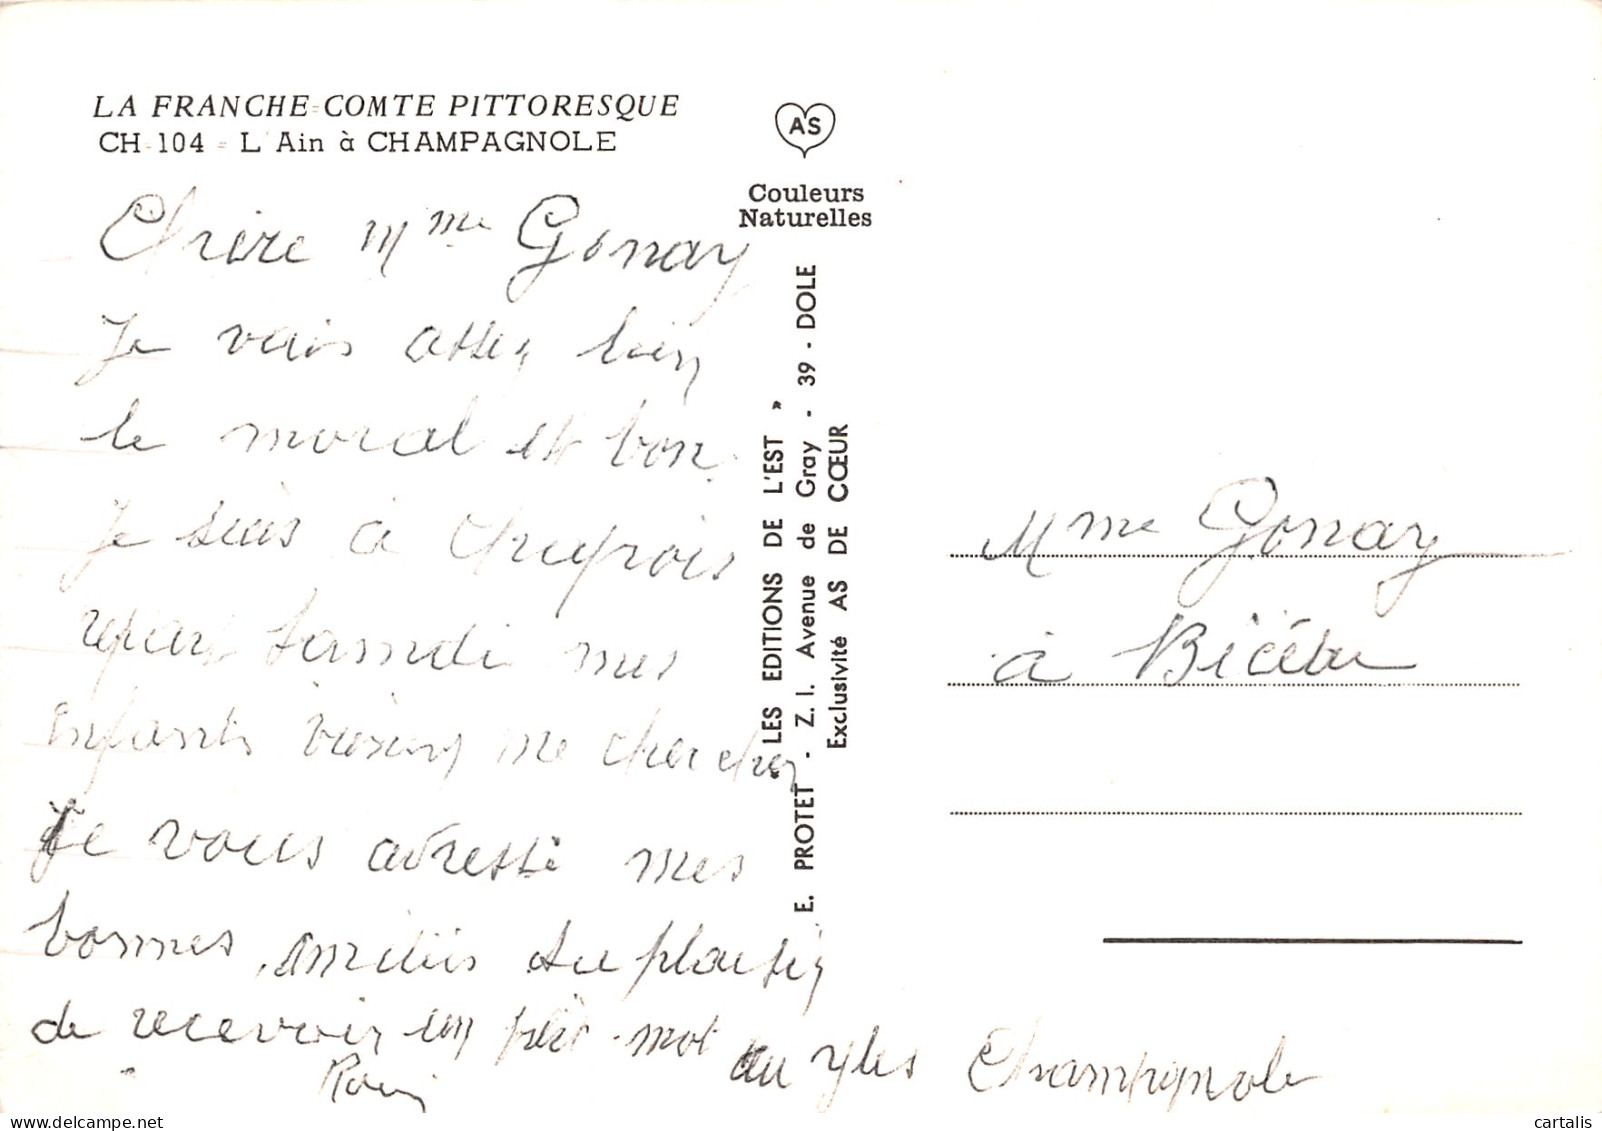 LA FRANCHE-COMTE PITTORESQUE
CH-104 - L'Ain à CHAMPAGNOLE
AS
Couleurs
Naturelles
Chère Mme Gonay
Je vais assez bien
le moral est bon
Je suis à
repart Samdi mes
enfants me cherchez
Je vous adresse mes
bonnes amitiés au plaisir
de recevoir un petit mot au Champagnole
« LES EDITIONS DE L'EST »
E. PROTET - Z. I. Avenue de Gray - 39 - DOLE
Exclusivité AS DE CŒUR
Mme Gonay
à
cartalis